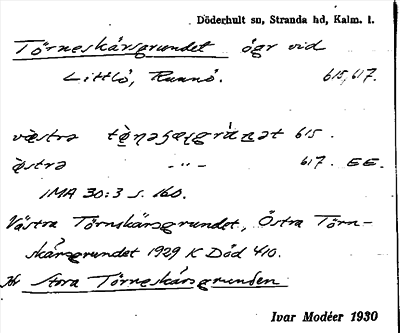 Döderhult sn, Stranda hd, Kalm. l.
Törneskärsgrundet ögr vid
Littlö, Runnö. 615, 617.
västra 615.
östra -"- 617. EE.
IMA 30:3 s. 160.
Västra Törnskärsgrundet, Östra Törn-
skärsgrundet 1929 K Död 410.
Jfr Stora Törneskärsgrunden
Ivar Modéer 1930